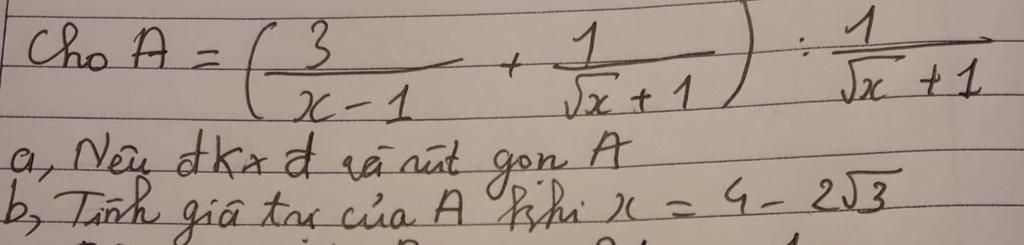 Cho A = (3/(x-1) + 1/(√x + 1)) : 1/(√x + 1)
a, Nêu đkxđ và rút gọn A
b, Tính giá trị của A khi x = 4 - 2√3